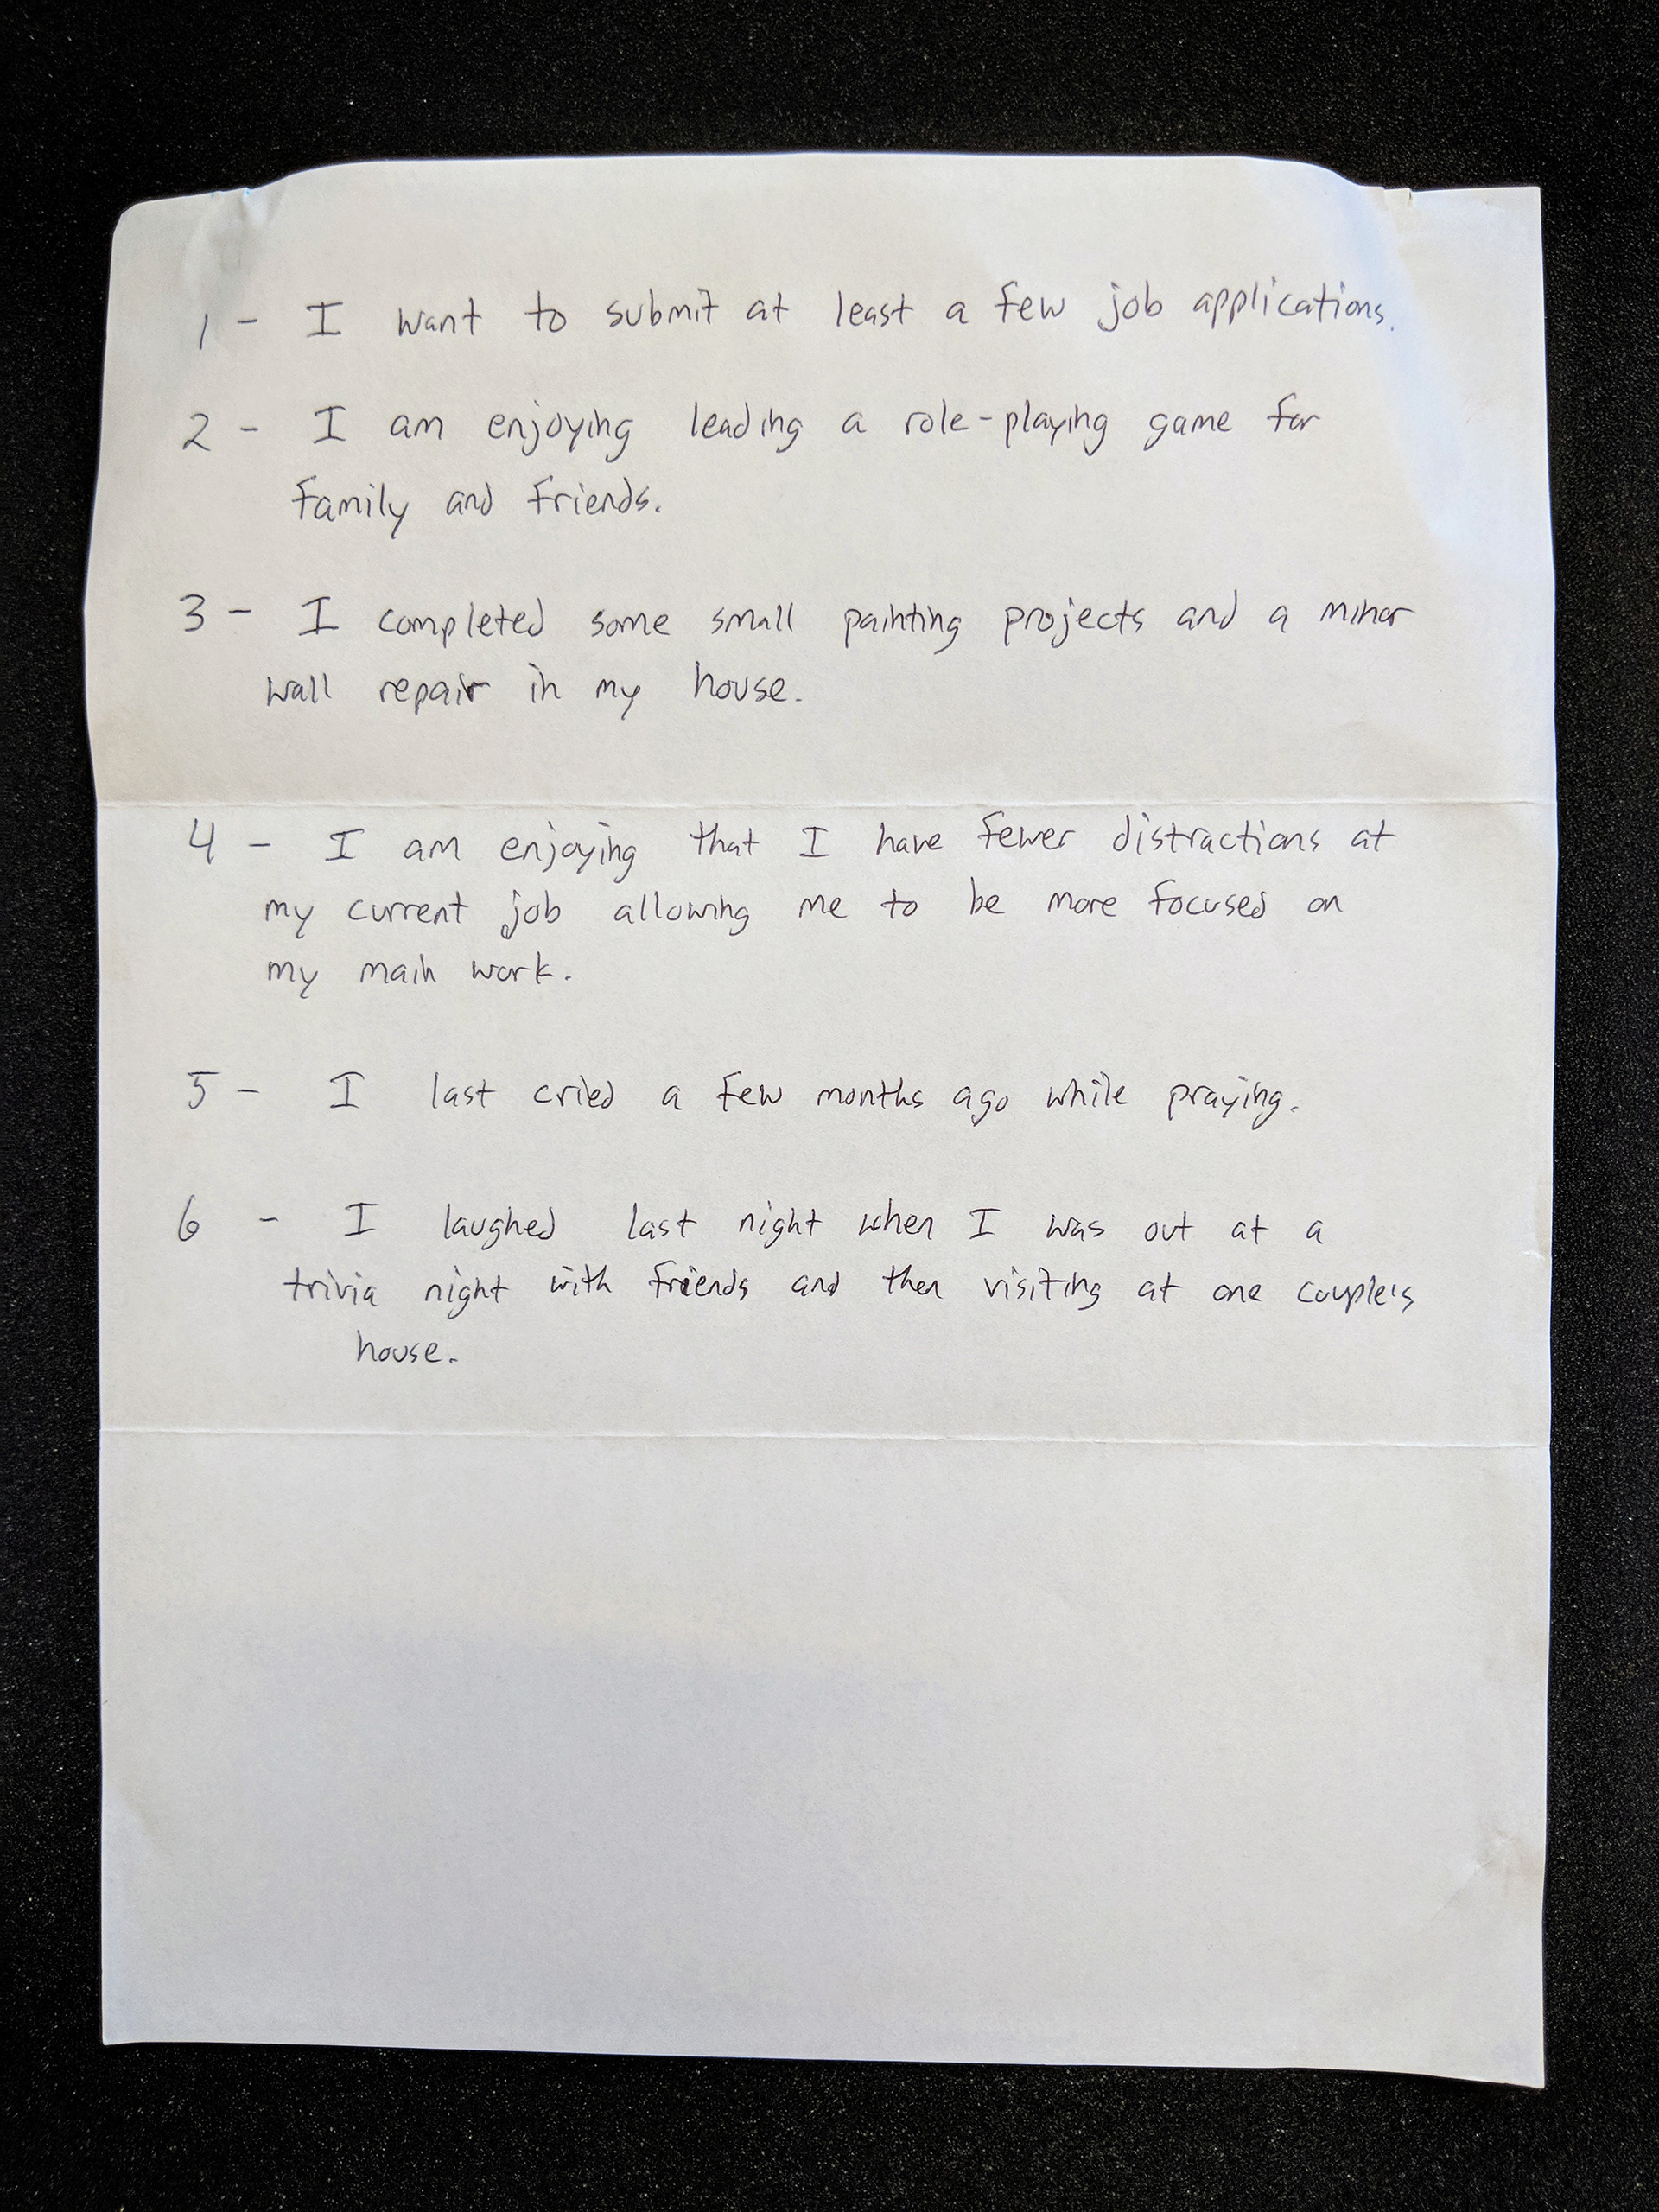 1 - I want to submit at least a few job applications.
2 - I am enjoying leading a role-playing game for
family and friends.
3 - I completed some small painting projects and a minor
wall repair in my house.
4 - I am enjoying that I have fewer distractions at
my current job allowing me to be more focused on
my main work.
5 - I last cried a few months ago while praying.
6 - I laughed last night when I was out at a
trivia night with friends and then visiting at one couple's
house.